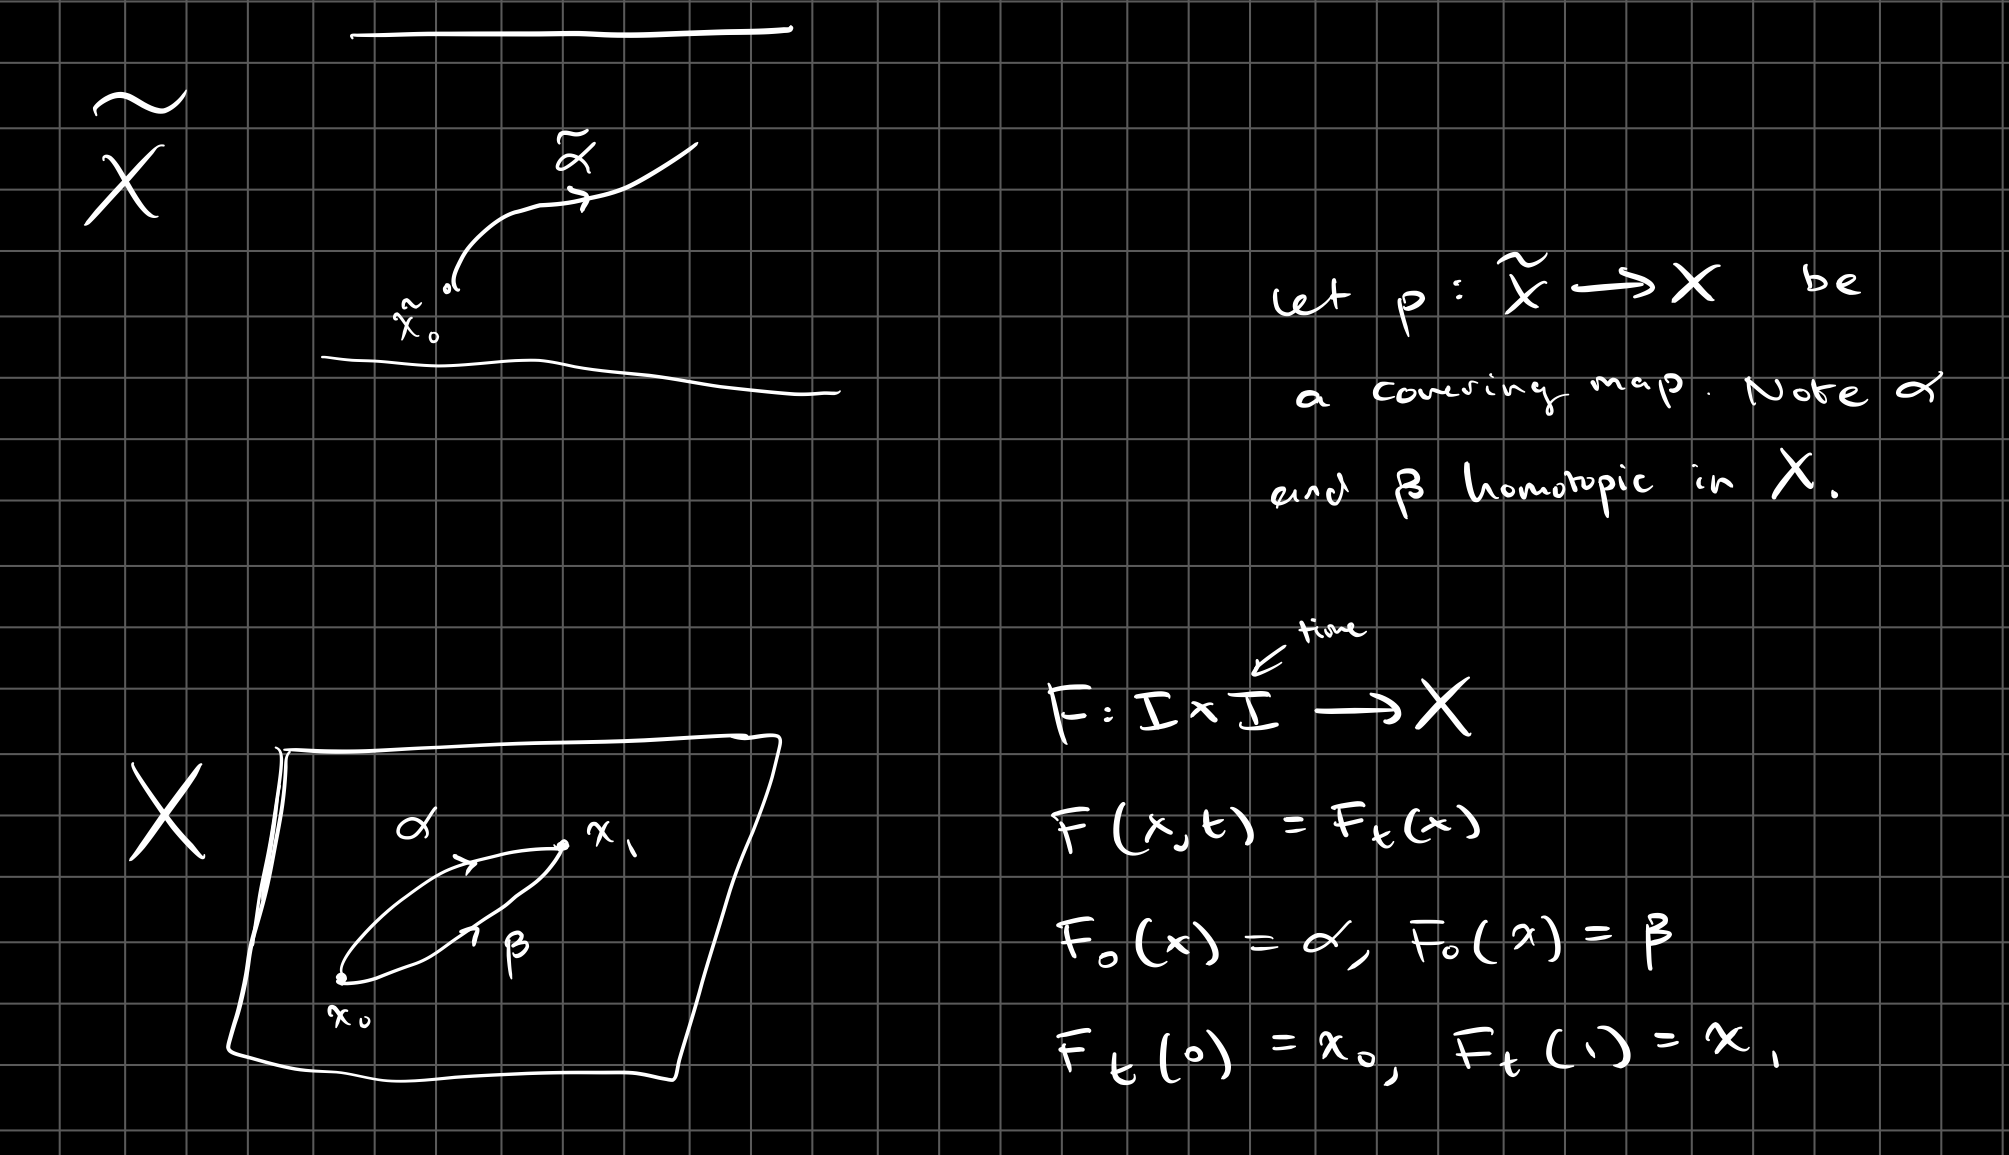 X̃
α̃
x̃₀
let p : X̃ ⟶ X be
a covering map. Note α
and β homotopic in X.
time
F: I × I ⟶ X
F(x,t) = Fₜ(x)
F₀(x) = α, F₀(x) = β
Fₜ(0) = x₀, Fₜ(1) = x₁
X
α
x₁
β
x₀